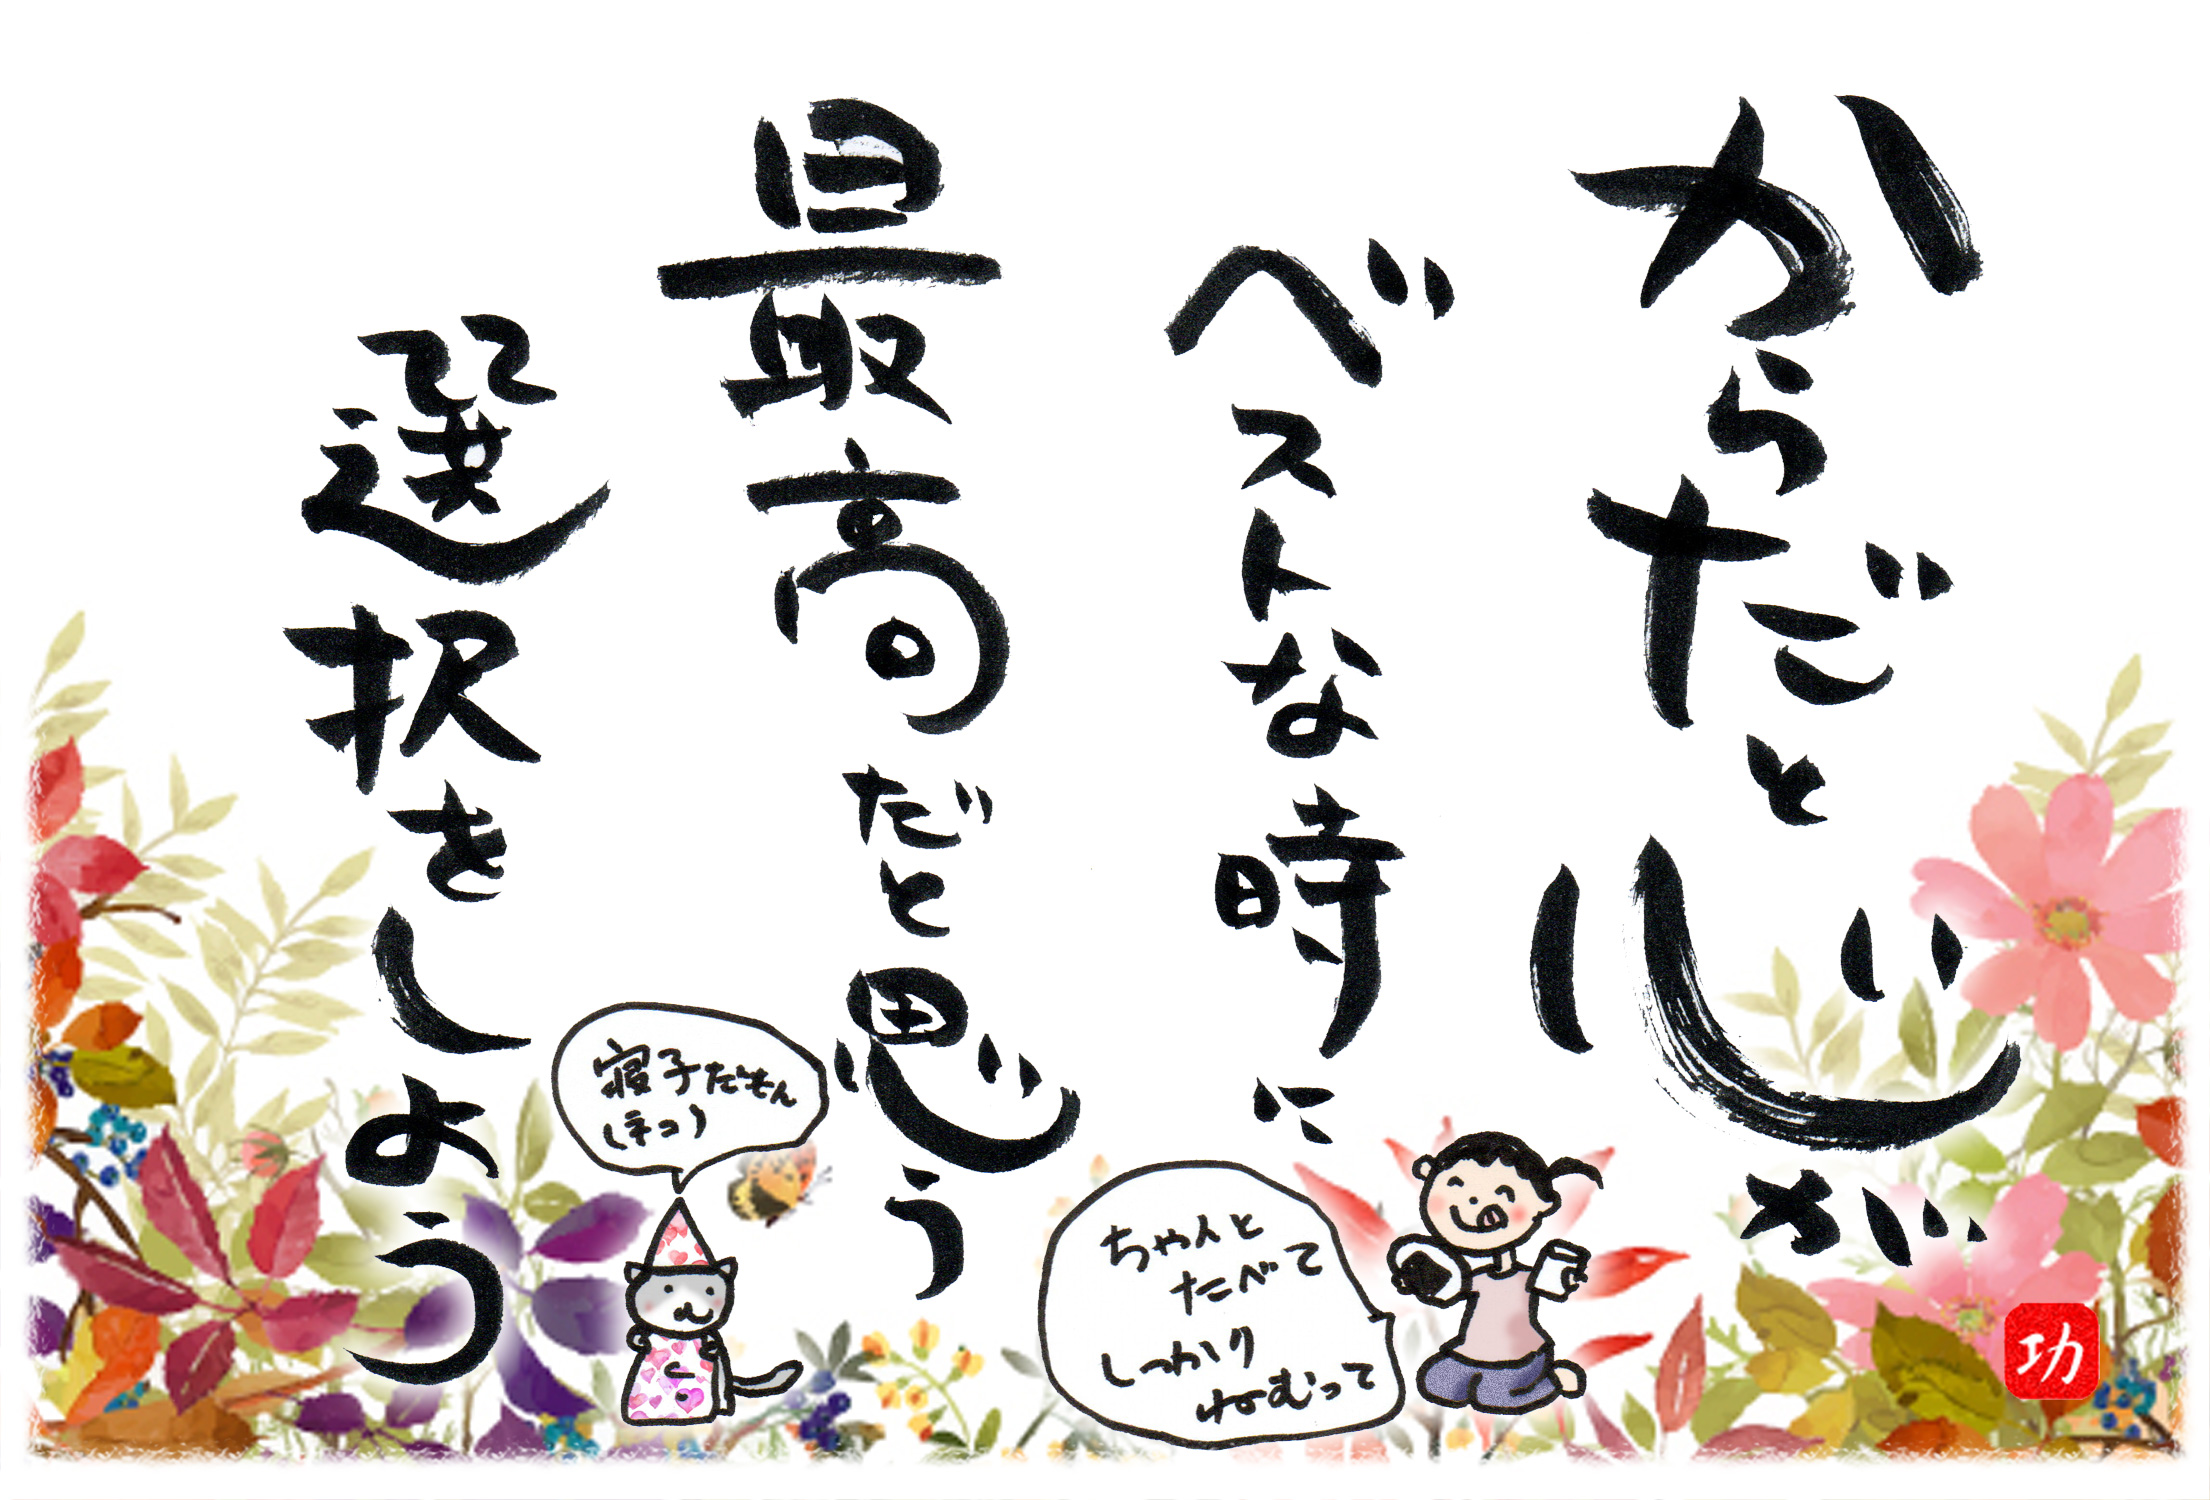 からだと心が
ベストな時に
最高だと思う
選択をしよう
ちゃんと
たべて
しっかり
ねむって
寝子だもん
(ネコ)
功